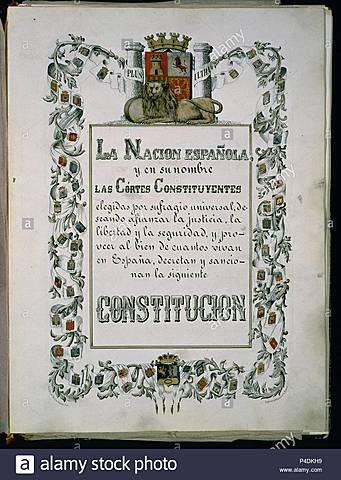 PLUS ULTRA
LA NACION ESPAÑOLA,
y en su nombre
LAS CÓRTES CONSTITUYENTES
elegidas por sufragio universal, de-
seando afianzar la justicia, la
libertad y la seguridad, y pro-
veer al bien de cuantos vivan
en España, decretan y sancio-
nan la siguiente
CONSTITUCION
alamy
alamy
alamy
alamy stock photo
P4DKH9
www.alamy.com